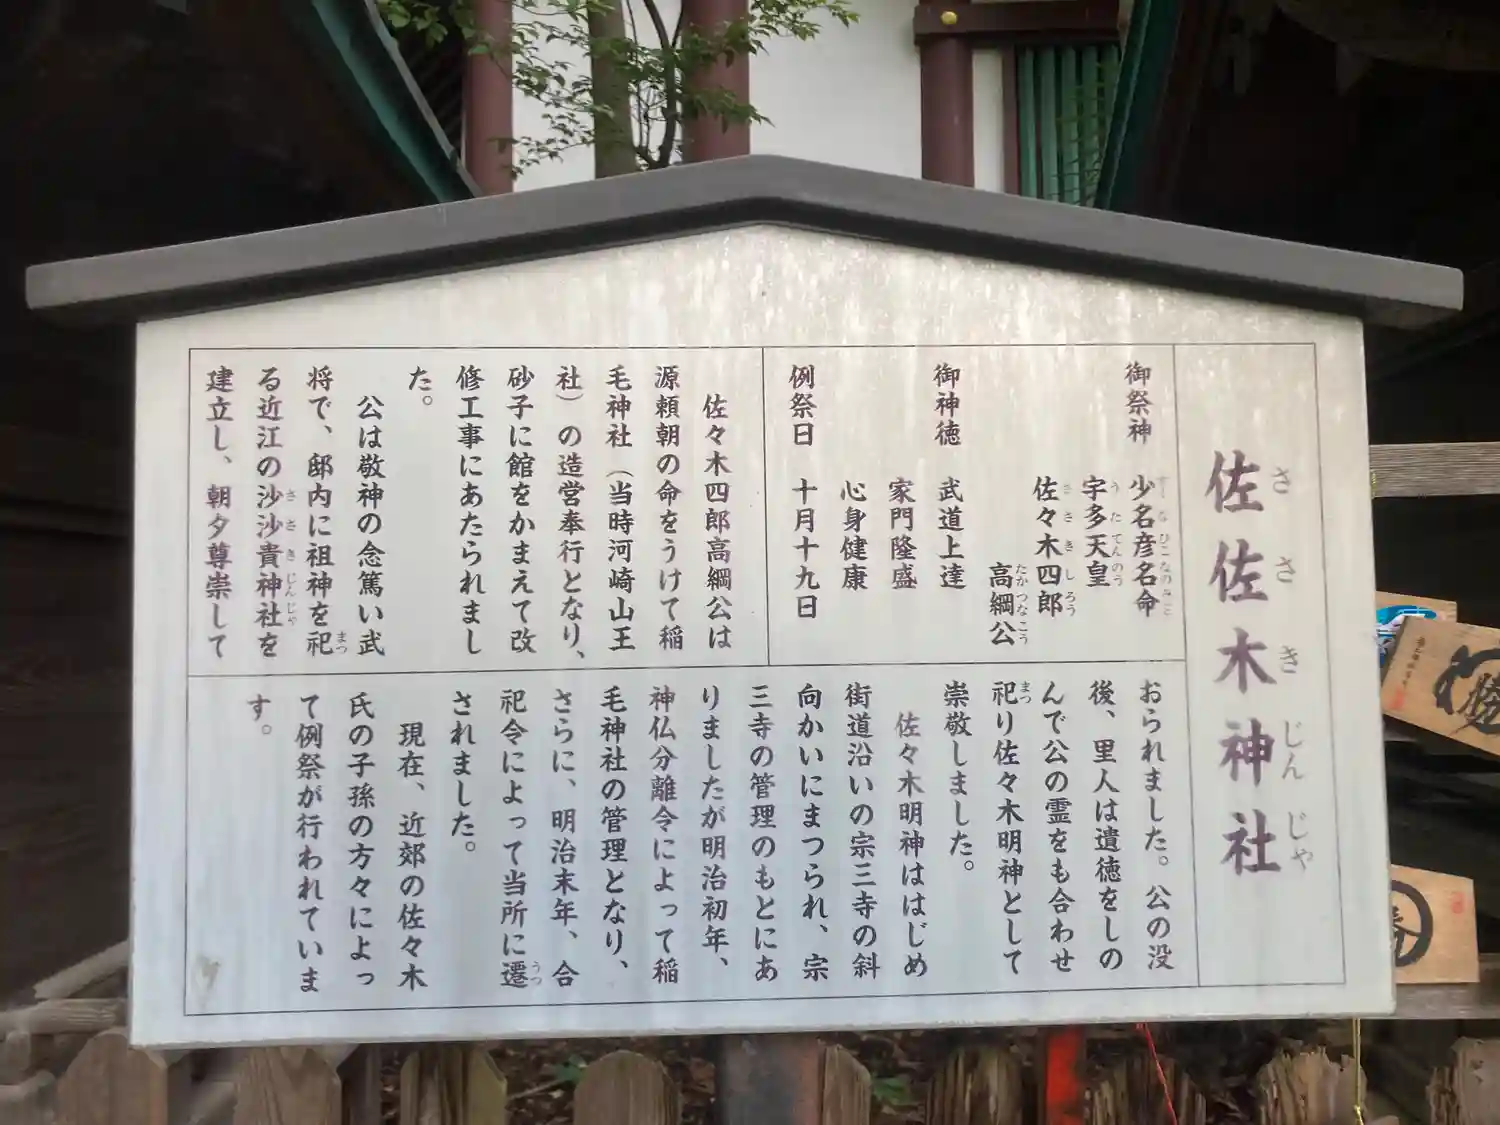 佐佐木神社
さ さ き じん じゃ
御祭神 少名彦名命
すーな ひこ なのみこと
宇多天皇
う た てんのう
佐々木四郎
さ さ き し ろう
高綱公
たか つな こう
御神徳 武道上達
家門隆盛
心身健康
例祭日 十月十九日
佐々木四郎高綱公は
源頼朝の命をうけて稲
毛神社（当時河崎山王
社）の造営奉行となり、
砂子に館をかまえて改
修工事にあたられまし
た。
公は敬神の念篤い武
将で、邸内に祖神を祀
まつ
る近江の沙沙貴神社を
さ さ き じん じゃ
建立し、朝夕尊崇して
おられました。公の没
後、里人は遺徳をしの
んで公の霊をも合わせ
祀り佐々木明神として
まつ
崇敬しました。
佐々木明神ははじめ
街道沿いの宗三寺の斜
向かいにまつられ、宗
三寺の管理のもとにあ
りましたが明治初年、
神仏分離令によって稲
毛神社の管理となり、
さらに、明治末年、合
祀令によって当所に遷
うつ
されました。
現在、近郊の佐々木
氏の子孫の方々によっ
て例祭が行われていま
す。
勝